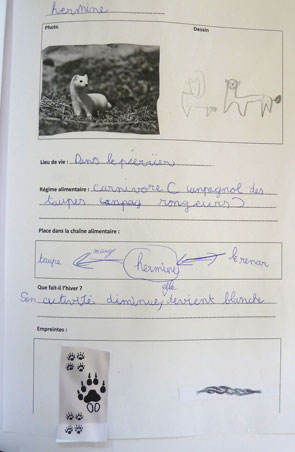 hermine
Photo
Dessin
Lieu de vie : Dans le pierrier
Régime alimentaire : Carnivore C canpagnol des
taupes rongeurs)
Place dans la chaîne alimentaire :
taupe mange hermine le renar
Que fait-il l'hiver ? elle
Son activité diminue, devient blanche
Empreintes :